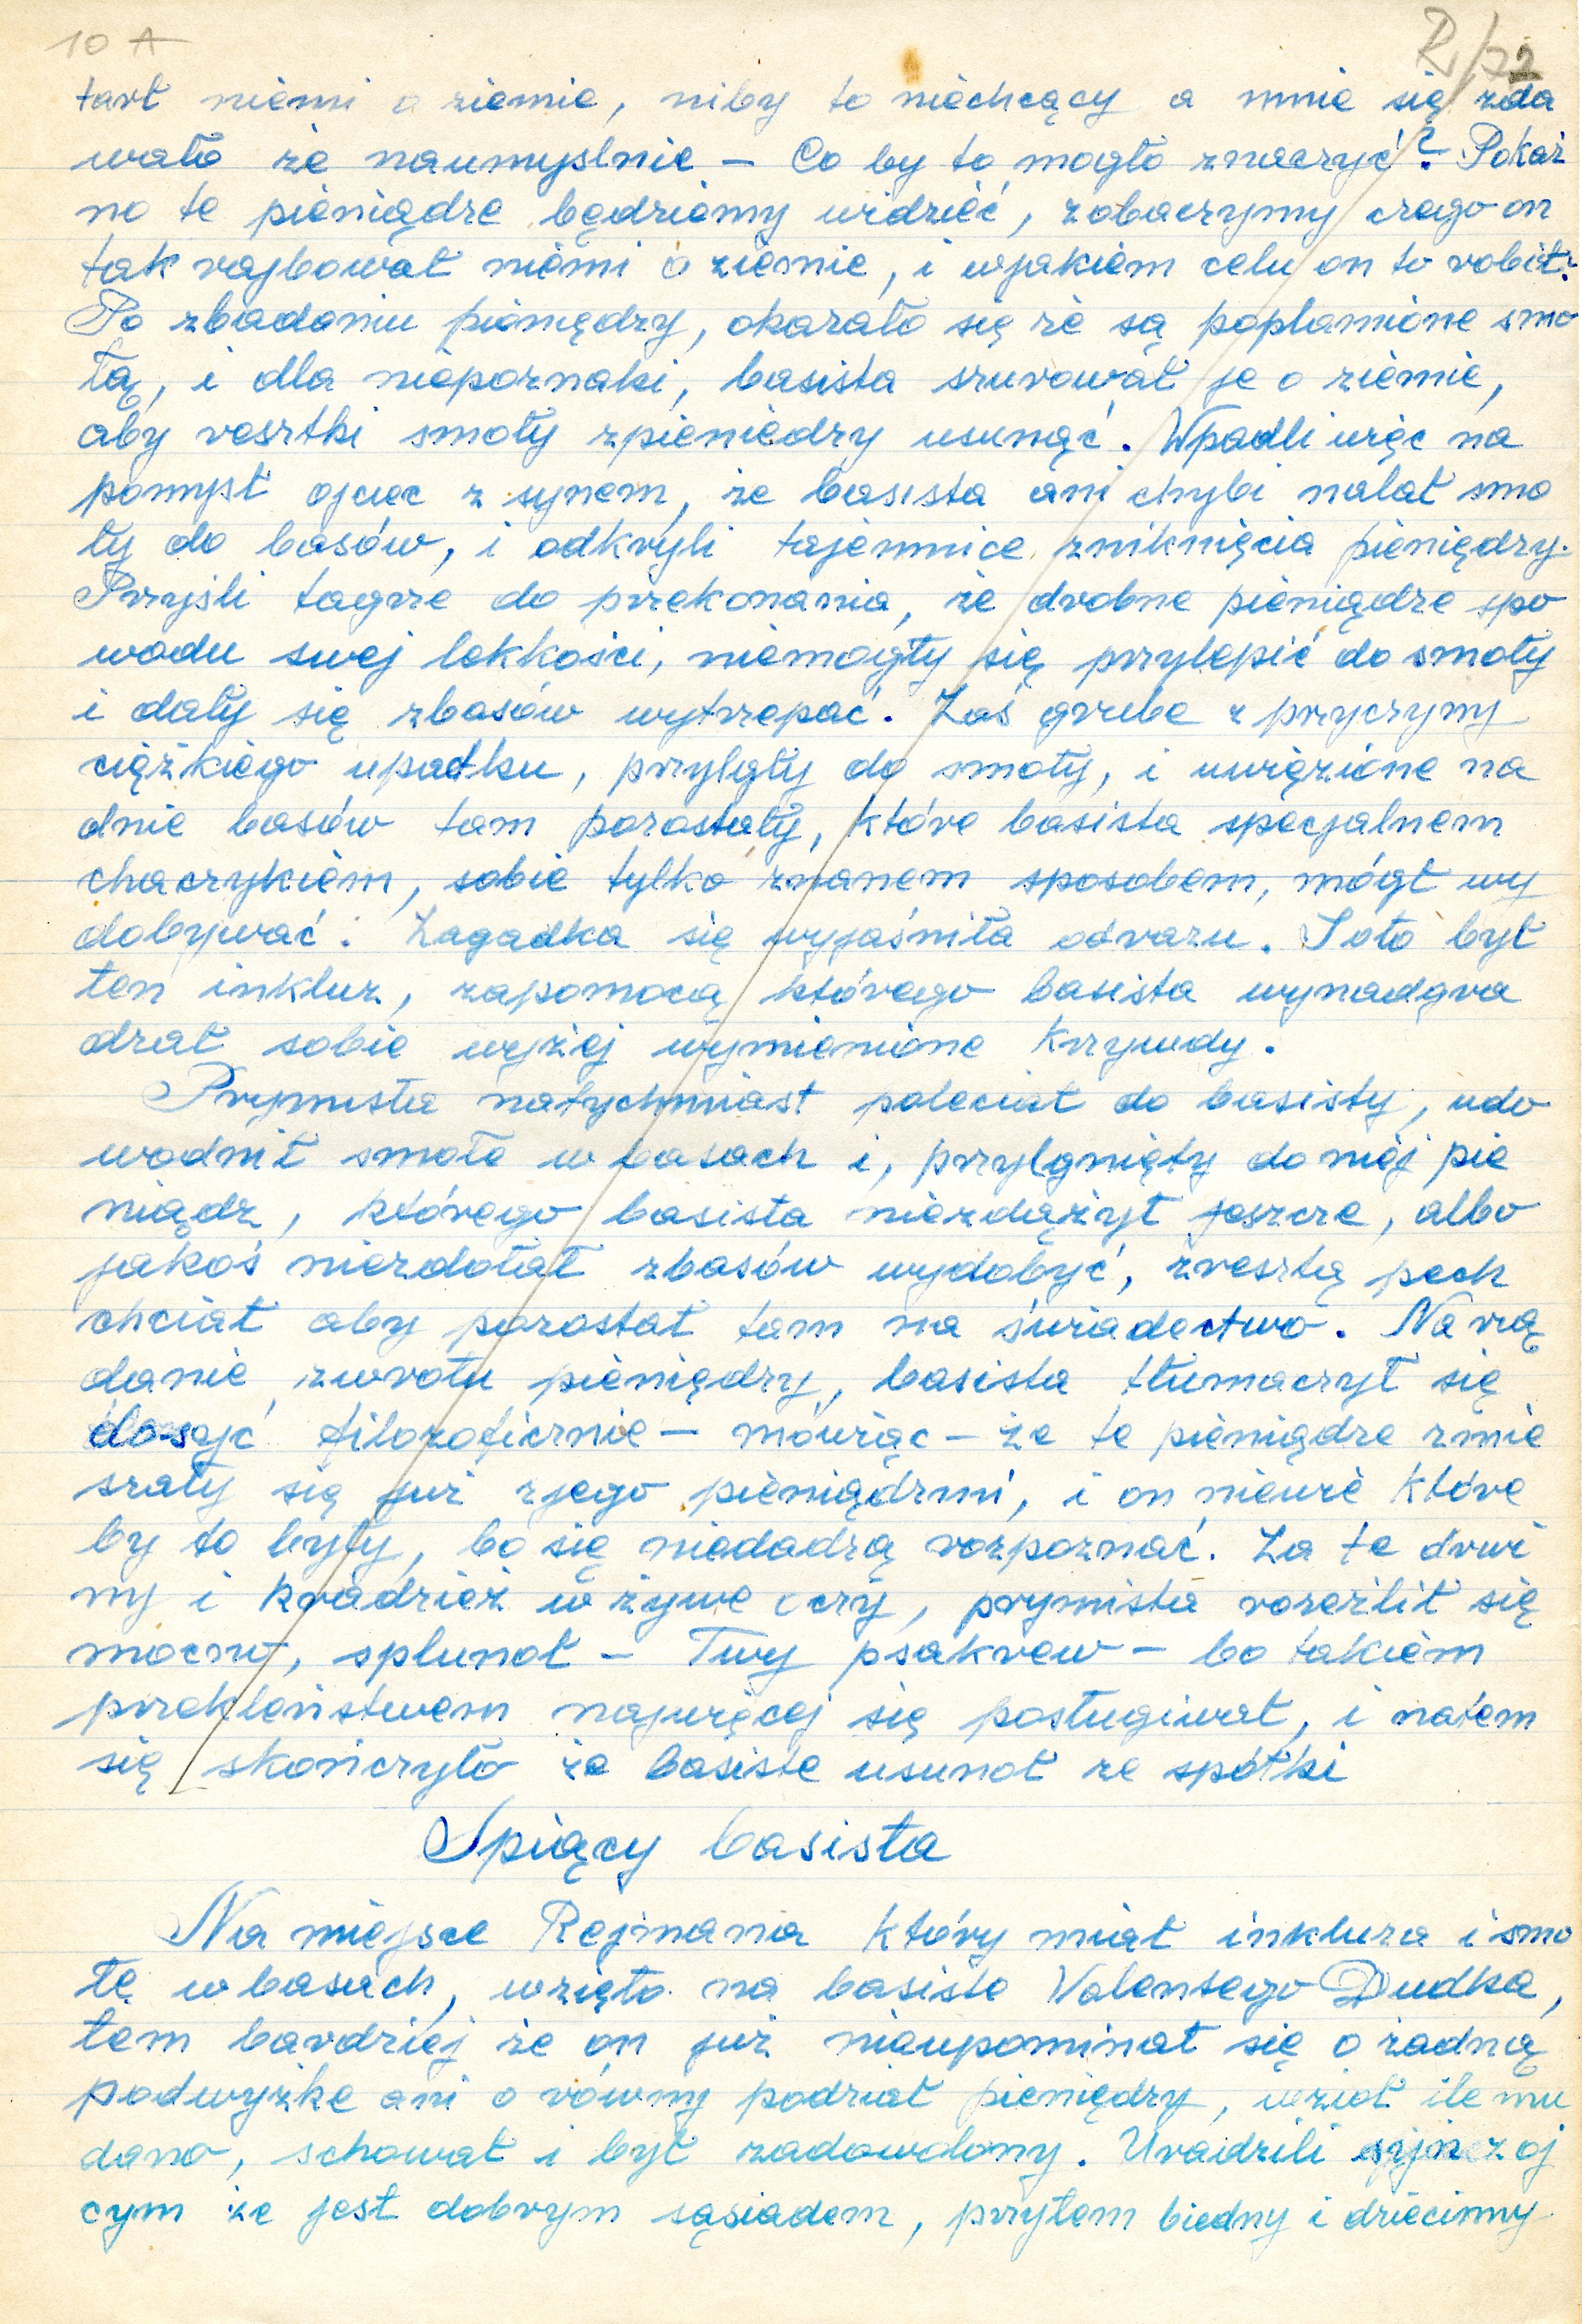 10 A
tarł niemi o ziemie, niby to niechcący a mnie się zda
wało że naumyslnie – Co by to mogło znaczyć? Pokaż
no te pieniądze będziemy widzieć, zobaczymy czego on
tak rajbował niemi o ziemie, i wjakiem celu on to robił?
Po zbadaniu pieniędzy, okazało się że są poplamione smo
łą, i dla niepoznaki, basista szurował je o ziemie,
aby resztki smoły zpieniedzy usunąć. Wpadli więc na
pomysł ojciec z synem, że basista ani chybi nalał smo
ły do basów, i odkryli tajemnice zniknięcia pieniędzy.
Przyśli tagże do przekonania, że drobne pieniądze spo
wodu swej lekkości, niemogły się przylepić do smoły
i dały się zbasów wytrzepać. Zaś grube z przyczyny
ciężkiego upadku, przylgły do smoły, i uwięzione na
dnie basów tam pozostały, które basista specjalnem
chaczykiem, sobie tylko znanem sposobem, mógł wy
dobywać. Zagadka się wyjaśniła odrazu. I oto był
ten inkluz, zapomocą którego basista wynadgra
dzał sobie wyżej wymienione krzywdy.
Prymista natychmiast poleciał do basisty, udo
wodnił smołe w basach i, przylgnięty do niej pie
niądz, którego basista niezdążył jeszcze, albo
jakoś niezdołał zbasów wydobyć, zresztą pech
chciał aby pozostał tam na świadectwo. Na rzą
danie zwrotu pieniędzy, basista tłumaczył się
dosyć filozoficznie – mówiąc – że te pieniądze zmie
szały się już zjego pieniądzmi, i on niewie które
by to były, bo się niedadzą rozpoznać. Za te drwi
ny i kradzież w żywe oczy, prymista rozeźlił się
mocno, splunoł – Twy psakrew – bo takiem
przekleństwem najwięcej się posługiwał, i natem
się skończyło że basiste usunoł ze spółki
Spiący basista
Na miejsce Rejmana który miał inkluza i smo
łę w basach, wzięto na basiste Valentego Dudka,
tem bardziej że on już nieupominał się o żadną
podwyżke ani o równy podział pieniędzy, wzioł ile mu
dano, schował i był zadowolony. Uradzili syn z oj
cym że jest dobrym sąsiadem, przytem biedny i dziecinny